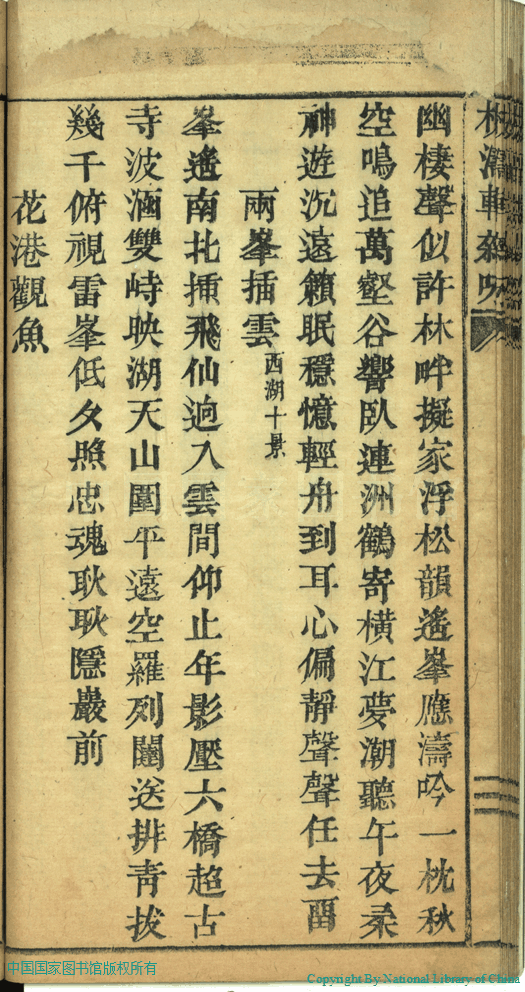 幽棲聲似許林畔擬家浮松韻遙峯應濤吟一枕秋
空鳴追萬壑谷響臥連洲鶴寄橫江夢潮聽午夜柔
神遊沉遠籟眠穩憶輕舟到耳心偏靜聲聲任去畱
兩峯插雲 西湖十景
峯遙南北揷飛仙迥入雲間仰止年影壓六橋超古
寺波涵雙峙映湖天山圍平遠空羅列闥送排青拔
幾千俯視雷峯低夕照忠魂耿耿隱巖前
花港觀魚
中国国家图书馆版权所有
Copyright By National Library of China